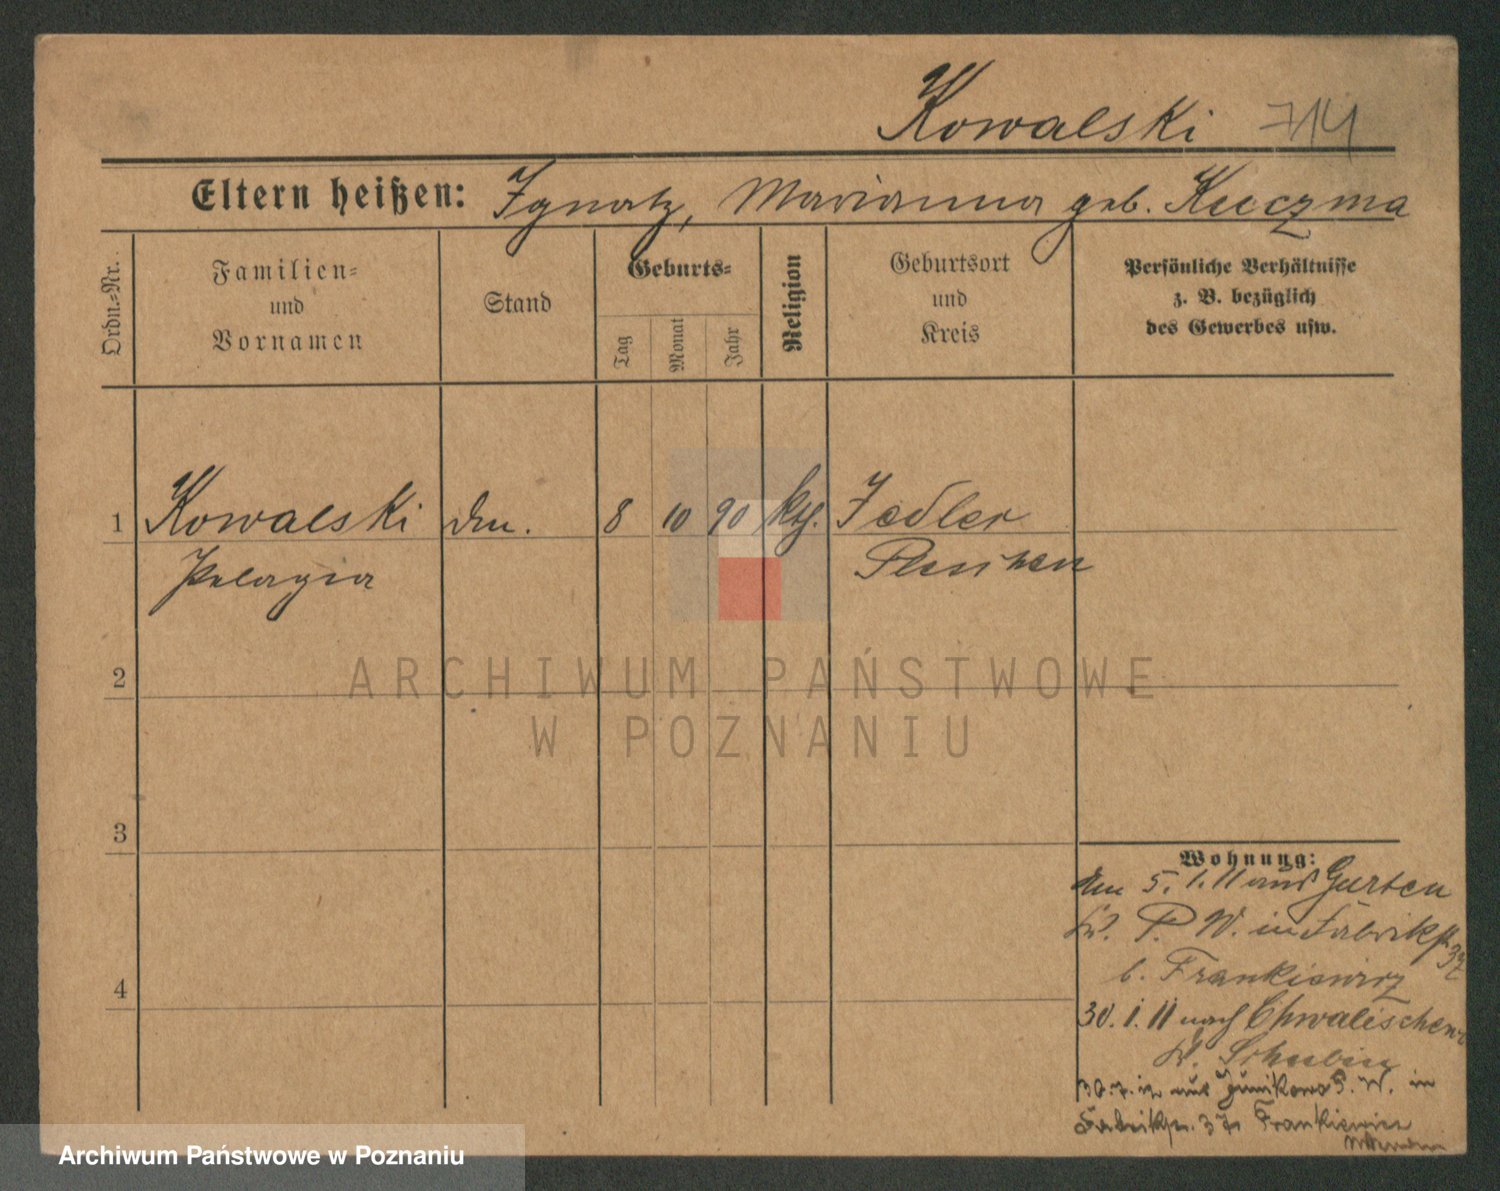 Kowalski 714
Eltern heißen: Ignatz, Marianna geb. Kuczma
Ordn.-Nr.
Familien-
und
Vornamen
Stand
Geburts-
Tag
Monat
Jahr
Religion
Geburtsort
und
Kreis
Persönliche Verhältnisse
z. B. bezüglich
des Gewerbes usw.
1 Kowalski 8 10 90 Jedlec
Pelagia Pleschen
2
3
4
Wohnung:
5. 1. 11 aus Gurten
P. W. in Fabrikst. 37
b. Frankiewicz
30. 1. 11 nach Chwalischen
Schubin
aus Junikowo P. W. in
Fabrikstr. 37 Frankiewicz
ARCHIWUM PAŃSTWOWE
W POZNANIU
Archiwum Państwowe w Poznaniu